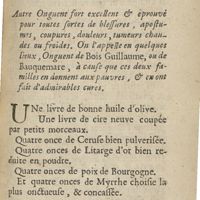 Autre Onguent fort excellent & éprouvé
pour toutes sortes de blessures, apostu-
mes, coupures, douleurs, tumeurs chau-
des ou froides. On l'appelle en quelques
lieux, Onguent de Bois Guillaume, ou de
Bauquemare, à cause que ces deux fa-
milles en donnent aux pauvres, & en ont
fait d'admirables cures.
UNe livre de bonne huile d'olive.
Une livre de cire neuve coupée
par petits morceaux.
Quatre once de Ceruse bien pulverisée.
Quatre onces de Litarge d'or bien re-
duite en poudre.
Quatre onces de poix de Bourgogne.
Et quatre onces de Myrrhe choisie la
plus onctueuse, & concassée.